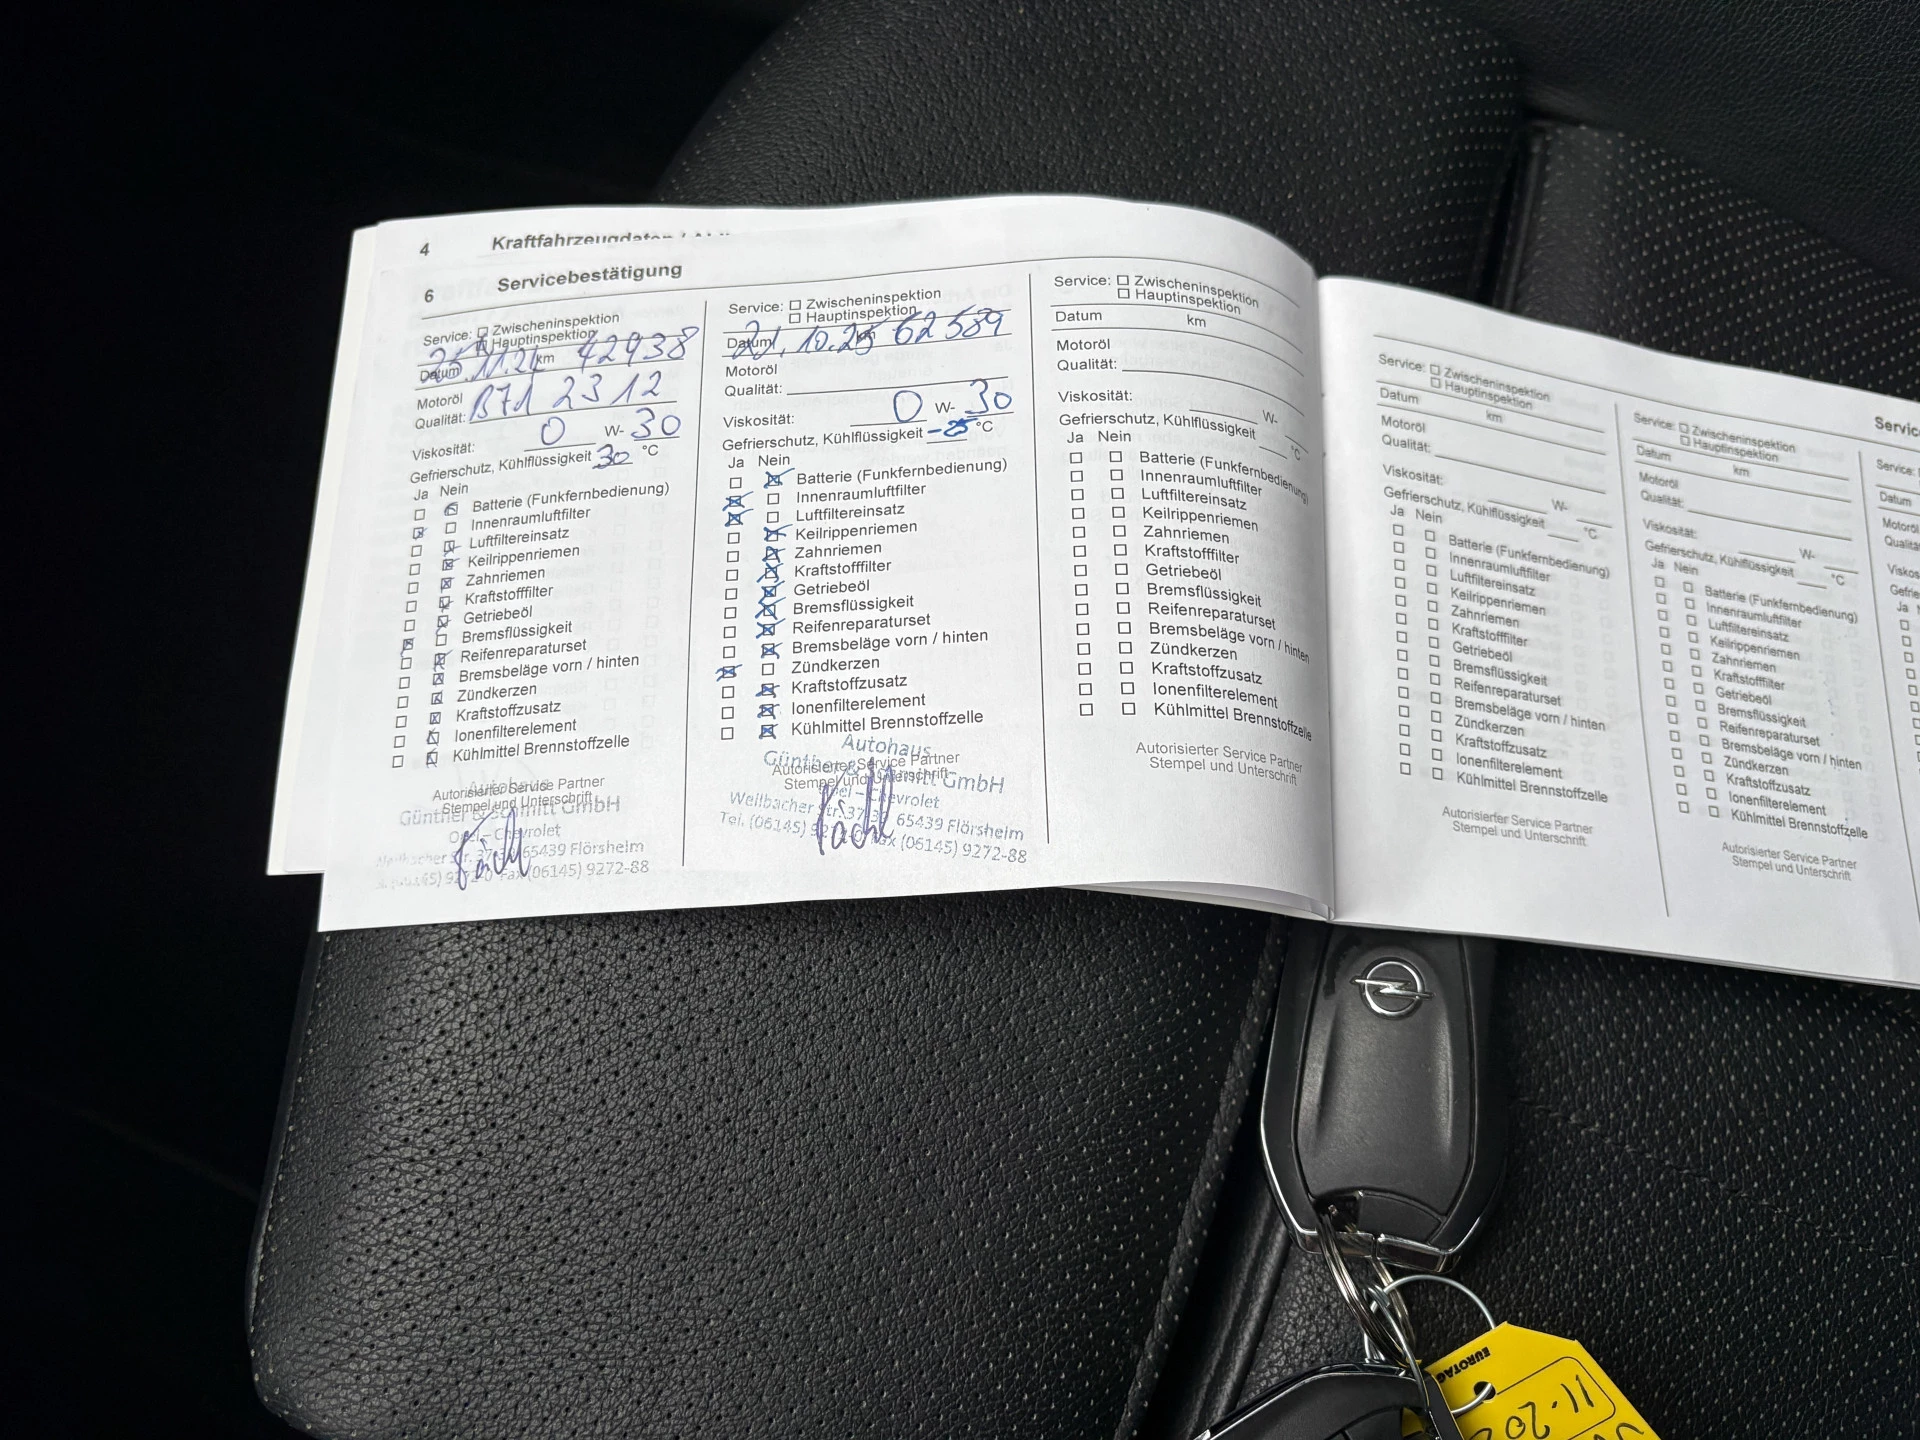 4 Kraftfahrzeugdaten
6 Servicebestätigung
Service: Zwischeninspektion
Hauptinspektion
Datum 25.11.24 km 42938
Motoröl
Qualität: B71 2312
Viskosität: 0 W- 30
Gefrierschutz, Kühlflüssigkeit 30 °C
Ja Nein
Batterie (Funkfernbedienung)
Innenraumluftfilter
Luftfiltereinsatz
Keilrippenriemen
Zahnriemen
Kraftstofffilter
Getriebeöl
Bremsflüssigkeit
Reifenreparaturset
Bremsbeläge vorn / hinten
Zündkerzen
Kraftstoffzusatz
Ionenfilterelement
Kühlmittel Brennstoffzelle
Autohaus
Autorisierter Service Partner
Stempel und Unterschrift
Günther & Schmitt GmbH
Opel – Chevrolet
Weilbacher Str. 37-39 65439 Flörsheim
Fax (06145) 9272-88
Service: Zwischeninspektion
Hauptinspektion
Datum 21.10.25 km 62589
Motoröl
Qualität:
Viskosität: 0 W- 30
Gefrierschutz, Kühlflüssigkeit -25 °C
Ja Nein
Batterie (Funkfernbedienung)
Innenraumluftfilter
Luftfiltereinsatz
Keilrippenriemen
Zahnriemen
Kraftstofffilter
Getriebeöl
Bremsflüssigkeit
Reifenreparaturset
Bremsbeläge vorn / hinten
Zündkerzen
Kraftstoffzusatz
Ionenfilterelement
Kühlmittel Brennstoffzelle
Autohaus
Autorisierter Service Partner
Günther & Schmitt GmbH
Stempel und Unterschrift
Opel – Chevrolet
Weilbacher Str. 37-39 65439 Flörsheim
Tel. (06145) 9272-0 Fax (06145) 9272-88
Service: Zwischeninspektion
Hauptinspektion
Datum km
Motoröl
Qualität:
Viskosität: W-
Gefrierschutz, Kühlflüssigkeit °C
Ja Nein
Batterie (Funkfernbedienung)
Innenraumluftfilter
Luftfiltereinsatz
Keilrippenriemen
Zahnriemen
Kraftstofffilter
Getriebeöl
Bremsflüssigkeit
Reifenreparaturset
Bremsbeläge vorn / hinten
Zündkerzen
Kraftstoffzusatz
Ionenfilterelement
Kühlmittel Brennstoffzelle
Autorisierter Service Partner
Stempel und Unterschrift
Service: Zwischeninspektion
Hauptinspektion
Datum km
Motoröl
Qualität:
Viskosität: W-
Gefrierschutz, Kühlflüssigkeit °C
Ja Nein
Batterie (Funkfernbedienung)
Innenraumluftfilter
Luftfiltereinsatz
Keilrippenriemen
Zahnriemen
Kraftstofffilter
Getriebeöl
Bremsflüssigkeit
Reifenreparaturset
Bremsbeläge vorn / hinten
Zündkerzen
Kraftstoffzusatz
Ionenfilterelement
Kühlmittel Brennstoffzelle
Autorisierter Service Partner
Stempel und Unterschrift
Service: Zwischeninspektion
Hauptinspektion
Datum km
Motoröl
Qualität:
Viskosität: W-
Gefrierschutz, Kühlflüssigkeit °C
Ja Nein
Batterie (Funkfernbedienung)
Innenraumluftfilter
Luftfiltereinsatz
Keilrippenriemen
Zahnriemen
Kraftstofffilter
Getriebeöl
Bremsflüssigkeit
Reifenreparaturset
Bremsbeläge vorn / hinten
Zündkerzen
Kraftstoffzusatz
Ionenfilterelement
Kühlmittel Brennstoffzelle
Autorisierter Service Partner
Stempel und Unterschrift
Service:
Datum
Motoröl
Ja
EUROTAG